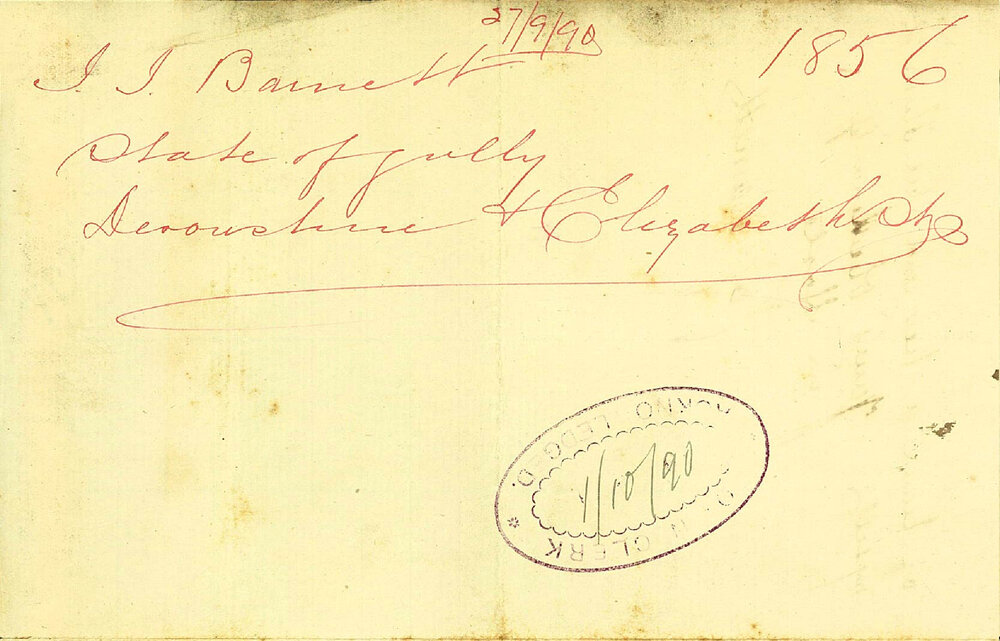 27/9/90
1856
J. J. Barnett
State of gully
Devonshire & Elizabeth Sts
ACKNOWLEDG'D.
1/10/90
CLERK *